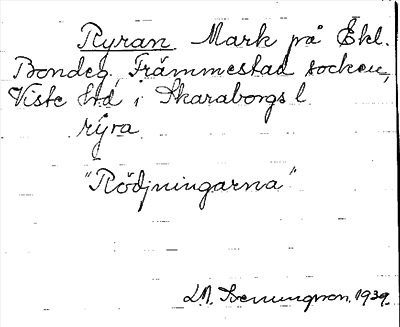 Ryran Mark på Ekl.
Bondeg. Främmestad socken,
Viste hd i Skaraborgs l.
rýra
"Rödjningarna"
1939.